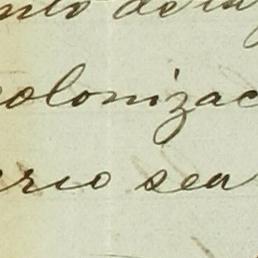 nto de la
colonizac
erio sea